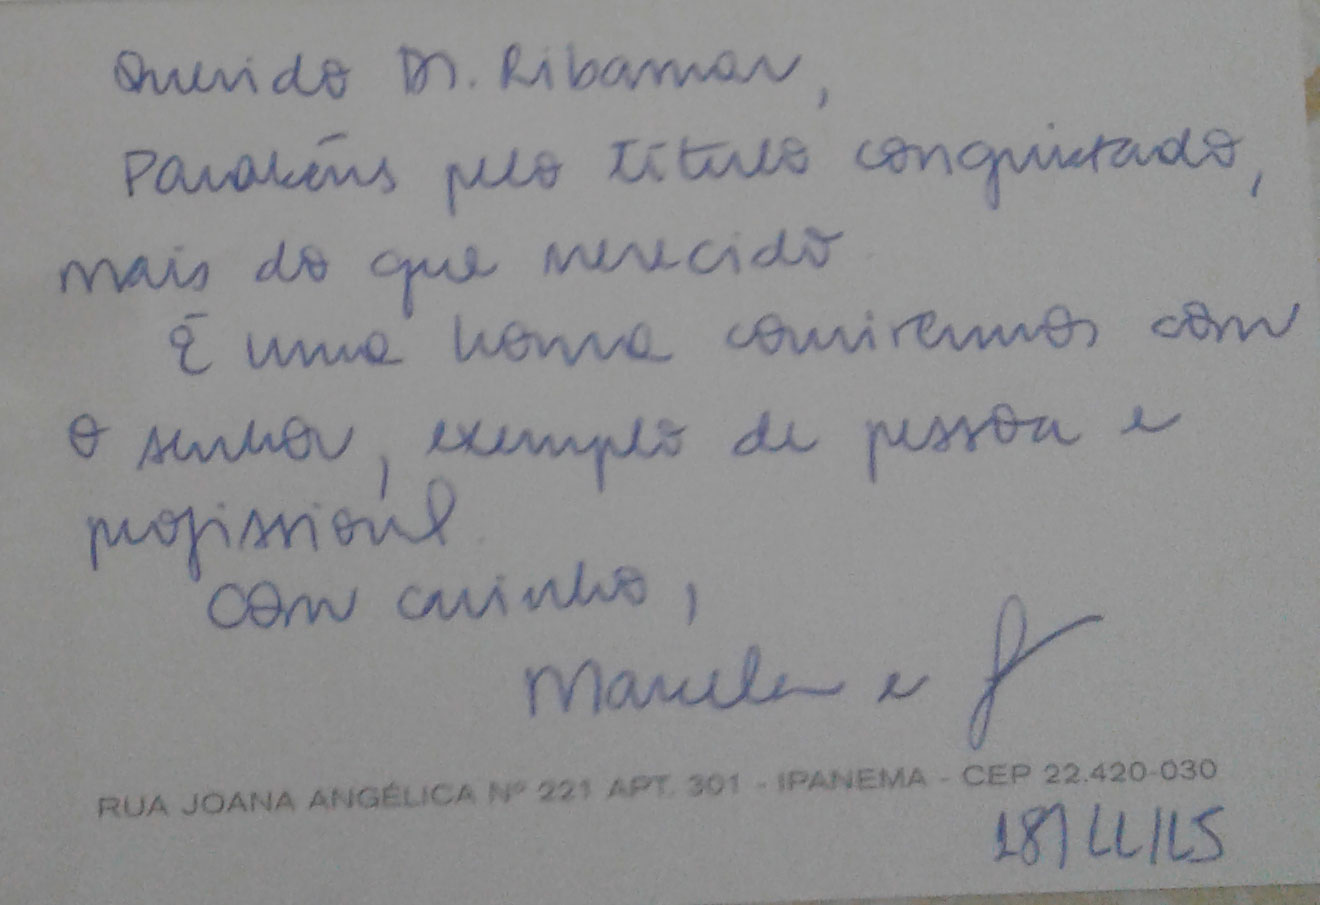 Querido Dr. Ribamar,
Parabéns pelo título conquistado,
mais do que merecido.
É uma honra convivermos com
o senhor, exemplo de pessoa e
profissional.
Com carinho,
Marcela e
RUA JOANA ANGÉLICA Nº 221 APT. 301 - IPANEMA - CEP 22.420-030
18/11/15